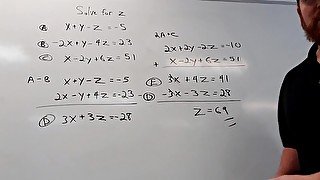 Solve for z
Ⓐ x+y-z=-5
Ⓑ -2x+y-4z=23
Ⓒ x-2y+6z=51
A-B x+y-z=-5
2x-y+4z=-23
Ⓓ 3x+3z=-28
2A+C
2x+2y-2z=-10
+ x-2y+6z=51
Ⓔ 3x+4z=41
-Ⓓ -3x-3z=28
z=69